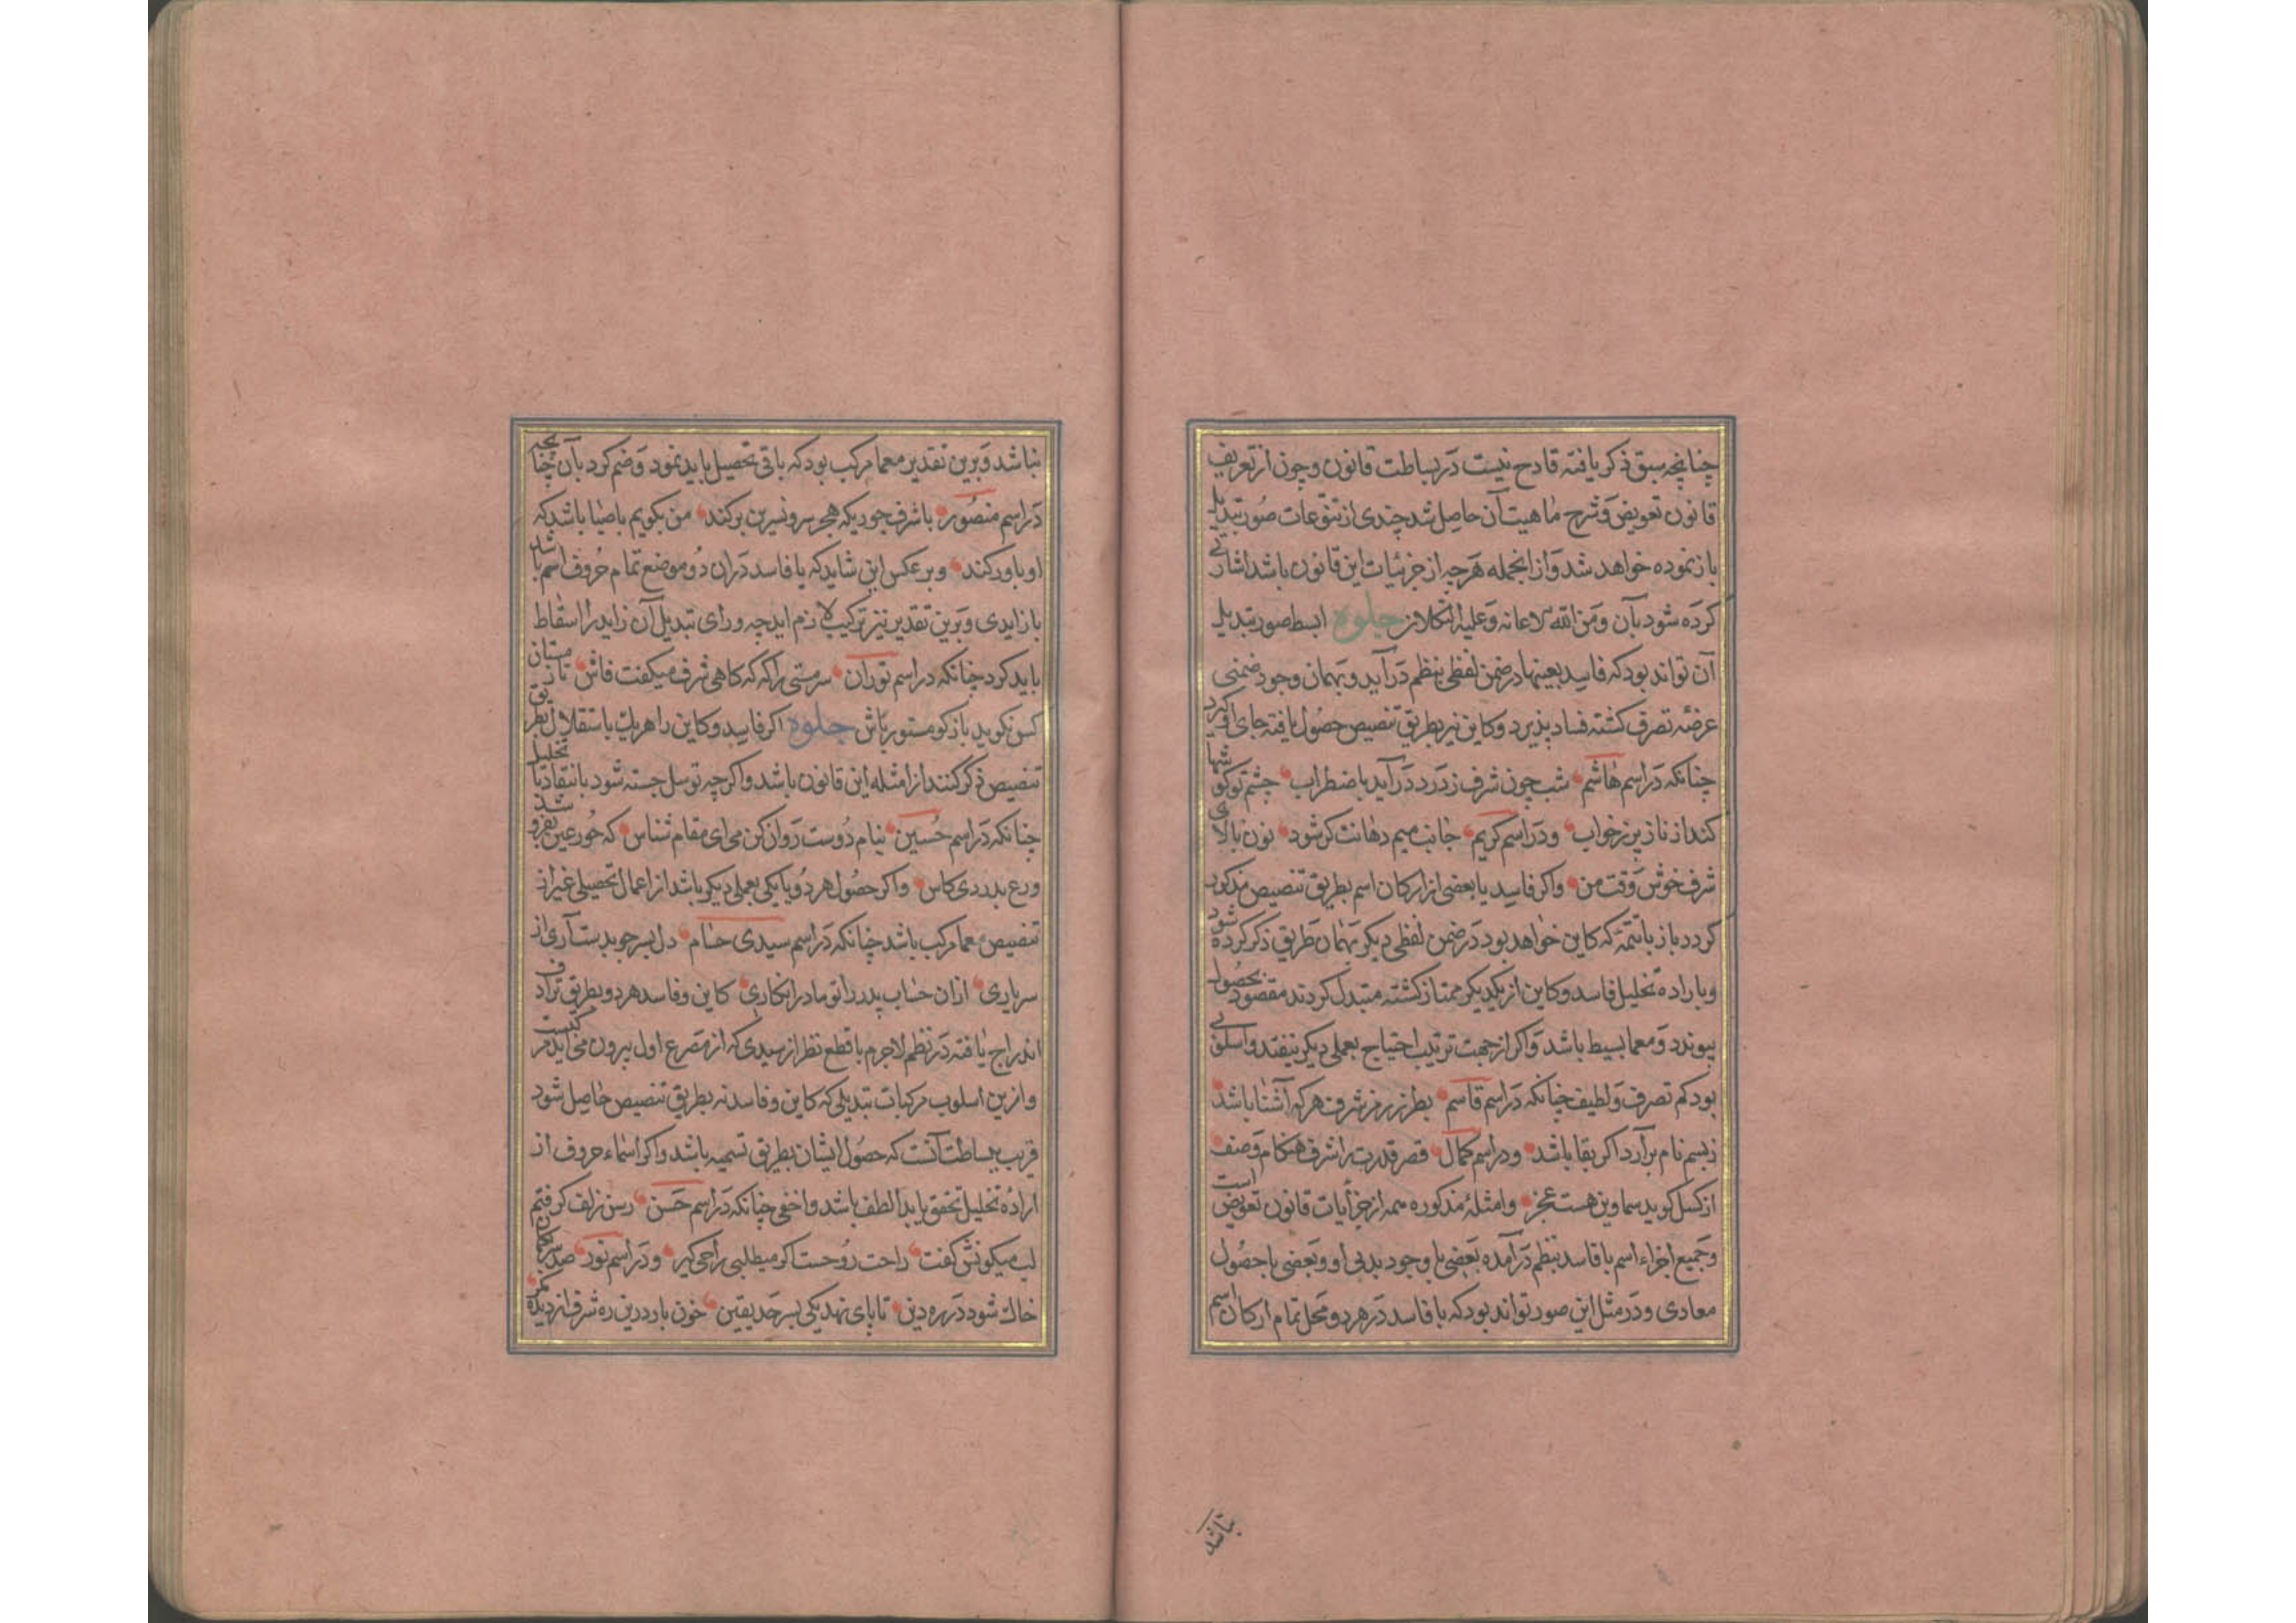 چنانچه سبق ذکر یافته قادح نیست در بساطت قانون و چون از تعریف
قانون تعویض و شرح ماهیت آن حاصل شد چندی از تنوعات صور تبدیل
باز نموده خواهد شد و از انجمله هرچه از جزئیات این قانون باشد اشارتی
کرده شود بآن و من الله الاعانه و علیه التکلان جلوه ابسط صور تبدیل
آن تواند بود که فاسد بعینها در ضمن لفظی بنظم درآید و بهمان وجود ضمنی
عرضه تصرف کشته فساد پذیرد و کاین نیز بطریق تنصیص حصول یافته جای او کیرد
چنانکه در اسم هاشم شب چون شرف ز درد درآید باضطراب چشم تو کو
کند از ناز پر ز خواب و در اسم کریم جانب میم دهانت کر شود نون بالای
شرف خوش وقت من و اکر فاسد با بعضی از ارکان اسم بطریق تنصیص مذکور
کردد باز با تتمه که کاین خواهد بود در ضمن لفظی دیکر بهمان طریق ذکر کرده شود
و باراده تحلیل فاسد و کاین از یکدیکر ممتاز کشته متبدل کردند مقصود بحصول
پیوندد و معما بسیط باشد و اکر از جهت ترتیب احتیاج بعملی دیکر نیفتد و اسلوبی
بود کم تصرف و لطیف چنانکه در اسم قاسم بطرز رمز شرف هرکه آشنا باشد
ز بسم نام برآرد اکر بقا باشد و در اسم کمال قصر قدرت را شرف هنکام وصف
از کسل کوید سما وین هست عجز و امثله مذکوره همه از جزئیات قانون تعویض است
و جمیع اجزاء اسم با فاسد بنظم درآمده بعضی با وجود بدیی او و بعضی با حصول
معادی و در مثل این صور تواند بود که با فاسد در هر دو محل تمام ارکان اسم
باشد
نباشد و برین تقدیر معما مرکب بود که باقی تحصیل باید نمود و ضم کرد بآن چنانچه
در اسم منصور با شرف جوریکه هجر سرو نسرین بر کند من بکویم با صبا باشد که
او باور کند و بر عکس این شاید که با فاسد دران دو موضع تمام حروف اسم باشد
با زایدی و برین تقدیر نیز ترکیب لازم آید چه ورای تبدیل آن زاید را اسقاط
باید کرد چنانکه در اسم توران سر مستی را که که کاهی شرف میکفت فاش تا ز مستان
کس نکوید باز کو مستور باش جلوه اکر فاسد و کاین را هر یک باستقلال بطریق
تنصیص ذکر کنند از امثله این قانون باشد و اکرچه توسل جسته شود بانتقاد یا تحلیل
چنانکه در اسم حسین بنام دوست روان کن می ای مقام شناس که حور عین بفرو شد
ورع بدردی کاس و اکر حصول هر دو یا یکی بعملی دیکر باشد از اعمال تحصیلی غیر از
تنصیص معما مرکب باشد چنانکه در اسم سیدی حسام دل بسر جو بدست آری از
سر یاری ازان حساب پدر را تو مادر انکاری کاین و فاسد هر دو بطریق ترادف
اندراج یافته در نظم لاجرم با قطع نظر از سیدی که از مصرع اول بیرون می آید مرکبست
و ازین اسلوب مرکبات تبدیلی که کاین و فاسد نه بطریق تنصیص حاصل شود
قریب ببساطت آنست که حصول ایشان بطریق تسمیه باشد و اکر اسماء حروف از
اراده تحلیل تحقق یابد الطف باشد و اخفی چنانکه در اسم حسن رسن زلف کرفتم
لب میکونش کفت راحت روحست اکر میطلبی راحی کیر و در اسم نور صد
خاک شود در ره دین تا پای نهد یکی بسر حد یقین خون بارد درین ره شرف از دیده